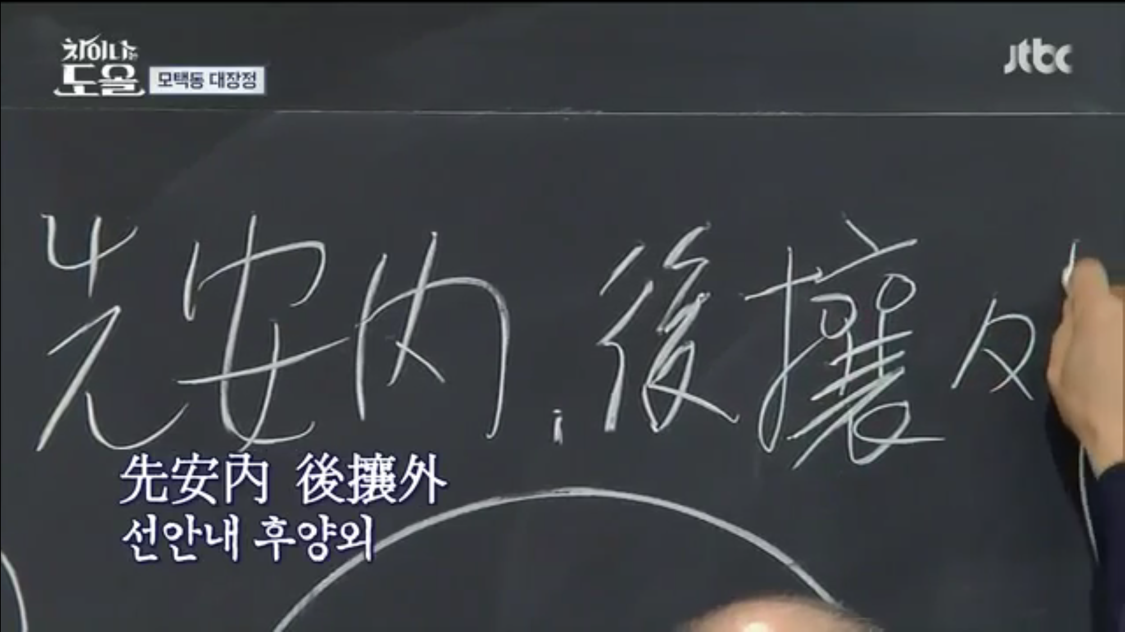 차이나는
도올
모택동 대장정
jtbc
先安内, 後攘夕
先安內 後攘外
선안내 후양외